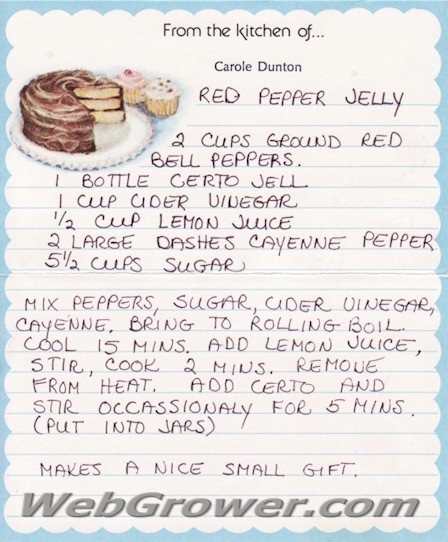 From the kitchen of...
Carole Dunton
RED PEPPER JELLY
2 CUPS GROUND RED
BELL PEPPERS.
1 BOTTLE CERTO JELL
1 CUP CIDER VINEGAR
1/2 CUP LEMON JUICE
2 LARGE DASHES CAYENNE PEPPER
5 1/2 CUPS SUGAR
MIX PEPPERS, SUGAR, CIDER VINEGAR,
CAYENNE. BRING TO ROLLING BOIL.
COOL 15 MINS. ADD LEMON JUICE,
STIR, COOK 2 MINS. REMOVE
FROM HEAT. ADD CERTO AND
STIR OCCASSIONALY FOR 5 MINS.
(PUT INTO JARS)
MAKES A NICE SMALL GIFT.
WebGrower.com